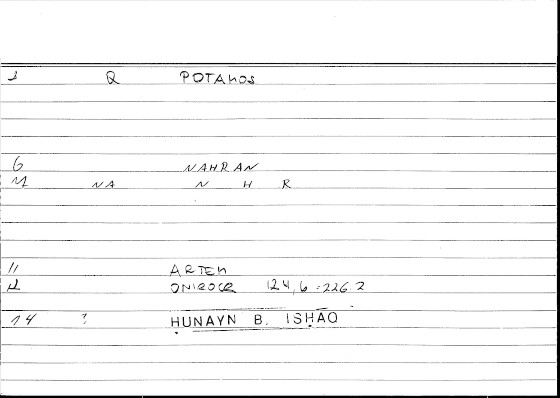 1 Q POTAMOS
6 NAHRAN
M NA N H R
11 ARTEM
12 ONIROCR 124,6 = 226.2
14 ? ḤUNAYN B. ISḤAQ